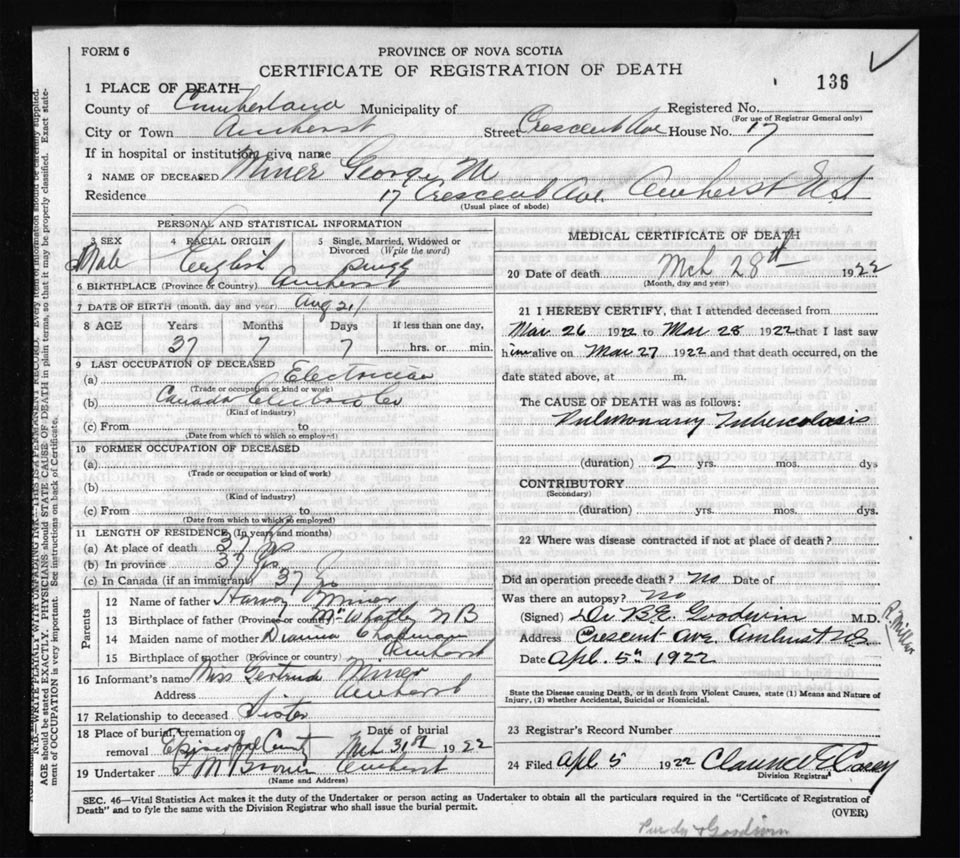 FORM 6
PROVINCE OF NOVA SCOTIA
CERTIFICATE OF REGISTRATION OF DEATH
136
1 PLACE OF DEATH
County of Cumberland Municipality of Registered No.
(For use of Registrar General only)
City or Town Amherst Street Crescent Ave House No. 17
If in hospital or institution, give name
2 NAME OF DECEASED Miner George M
Residence 17 Crescent Ave. Amherst NS
(Usual place of abode)
PERSONAL AND STATISTICAL INFORMATION
3 SEX 4 RACIAL ORIGIN 5 Single, Married, Widowed or Divorced (Write the word)
Male English
6 BIRTHPLACE (Province or Country) Amherst
7 DATE OF BIRTH (month, day and year) Aug 21
8 AGE Years Months Days If less than one day,
37 7 7 hrs. or min.
9 LAST OCCUPATION OF DECEASED
(a) Electrician
(Trade or occupation or kind of work)
(b) Canada Electric Co
(Kind of industry)
(c) From to
(Date from which to which so employed)
10 FORMER OCCUPATION OF DECEASED
(a)
(Trade or occupation or kind of work)
(b)
(Kind of industry)
(c) From to
(Date from which to which so employed)
11 LENGTH OF RESIDENCE (In years and months)
(a) At place of death 37 yrs
(b) In province 37 yrs
(c) In Canada (if an immigrant) 37 yrs
Parents
12 Name of father Harvey Miner
13 Birthplace of father (Province or country) NB
14 Maiden name of mother Chapman
15 Birthplace of mother (Province or country) Amherst
16 Informant's name Miss Gertrude Miner
Address Amherst
17 Relationship to deceased Sister
18 Place of burial, cremation or removal Episcopal Date of burial Mch 31st 1922
19 Undertaker F M Brown Amherst
(Name and Address)
MEDICAL CERTIFICATE OF DEATH
20 Date of death Mch 28th 1922
(Month, day and year)
21 I HEREBY CERTIFY, that I attended deceased from
Mar 26 1922 to Mar 28 1922 that I last saw
him alive on Mar 27 1922 and that death occurred, on the
date stated above, at m.
The CAUSE OF DEATH was as follows:
Pulmonary Tuberculosis
(duration) 2 yrs. mos. dys
CONTRIBUTORY
(Secondary)
(duration) yrs. mos. dys.
22 Where was disease contracted if not at place of death?
Did an operation precede death? no Date of
Was there an autopsy? no
(Signed) Dr B.E. Goodwin M.D.
Address Crescent Ave Amherst NS
Date Apl. 5th 1922
State the Disease causing Death, or in death from Violent Causes, state (1) Means and Nature of
Injury, (2) whether Accidental, Suicidal or Homicidal.
23 Registrar's Record Number
24 Filed Apl 5 1922
Division Registrar
SEC. 46—Vital Statistics Act makes it the duty of the Undertaker or person acting as Undertaker to obtain all the particulars required in the "Certificate of Registration of
Death" and to fyle the same with the Division Registrar who shall issue the burial permit.
(OVER)
Purdy & Goodwin
N.B.—WRITE PLAINLY WITH UNFADING INK—THIS IS A PERMANENT RECORD. Every item of information should be carefully supplied.
AGE should be stated EXACTLY. PHYSICIANS should STATE CAUSE OF DEATH in plain terms, so that it may be properly classified. Exact state-
ment of OCCUPATION is very important. See instructions on back of Certificate.